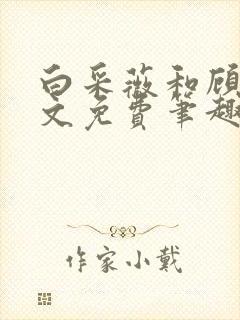 白采薇和顾
文免费笔趣
作家小戴